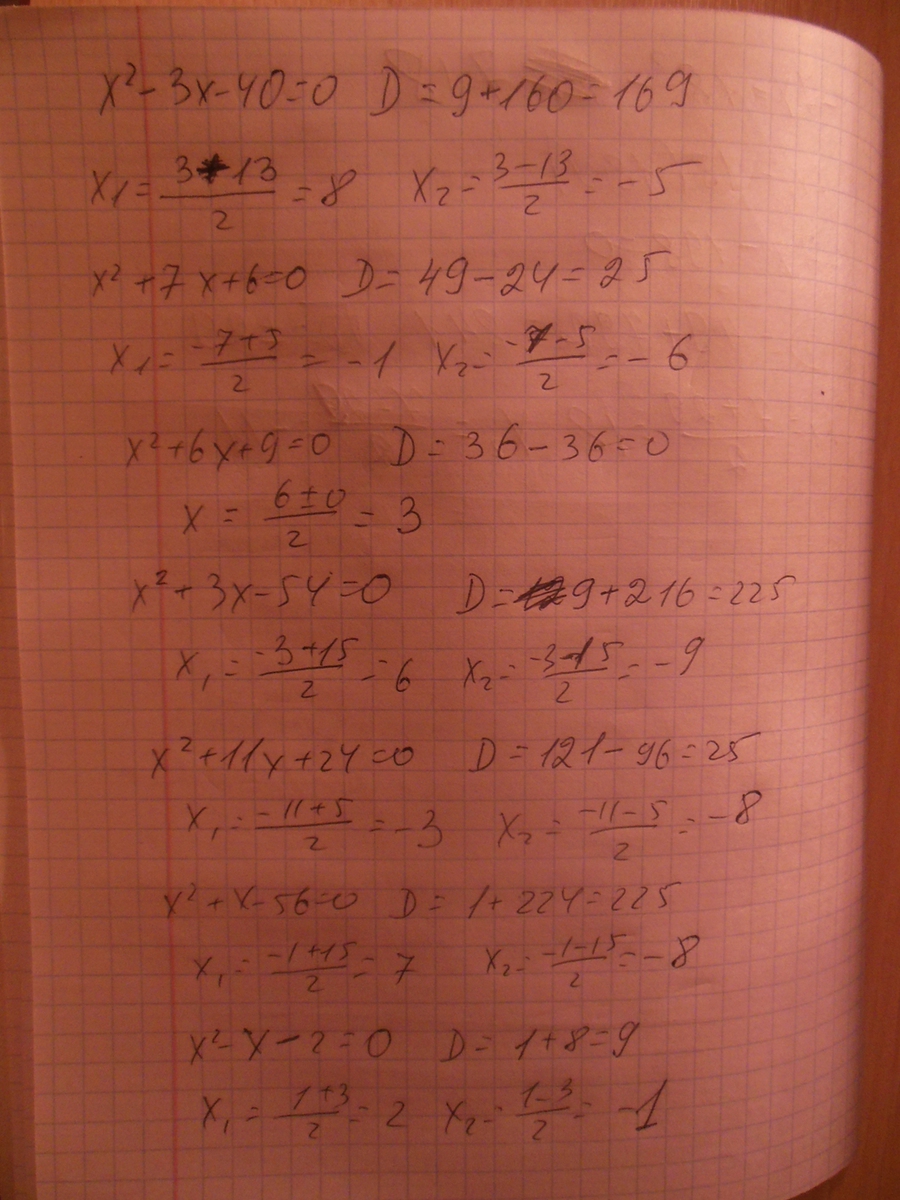 x² - 3x - 40 = 0 D = 9 + 160 = 169
x₁ = (3 + 13)/2 = 8 x₂ = (3 - 13)/2 = -5
x² + 7x + 6 = 0 D = 49 - 24 = 25
x₁ = (-7 + 5)/2 = -1 x₂ = (-7 - 5)/2 = -6
x² + 6x + 9 = 0 D = 36 - 36 = 0
x = (6 ± 0)/2 = 3
x² + 3x - 54 = 0 D = 9 + 216 = 225
x₁ = (-3 + 15)/2 = 6 x₂ = (-3 - 15)/2 = -9
x² + 11x + 24 = 0 D = 121 - 96 = 25
x₁ = (-11 + 5)/2 = -3 x₂ = (-11 - 5)/2 = -8
x² + x - 56 = 0 D = 1 + 224 = 225
x₁ = (-1 + 15)/2 = 7 x₂ = (-1 - 15)/2 = -8
x² - x - 2 = 0 D = 1 + 8 = 9
x₁ = (1 + 3)/2 = 2 x₂ = (1 - 3)/2 = -1